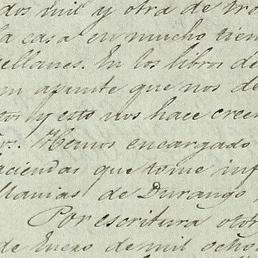 dos mil y otra de tre
la casa en mucho tiem
ellanes. En los libros de
un apunte que nos de
tos y esto nos hace creer
Hemos encargado
aciendas que tome inf
llanias de Durango
Por escritura otor
de Enero de mil ocho